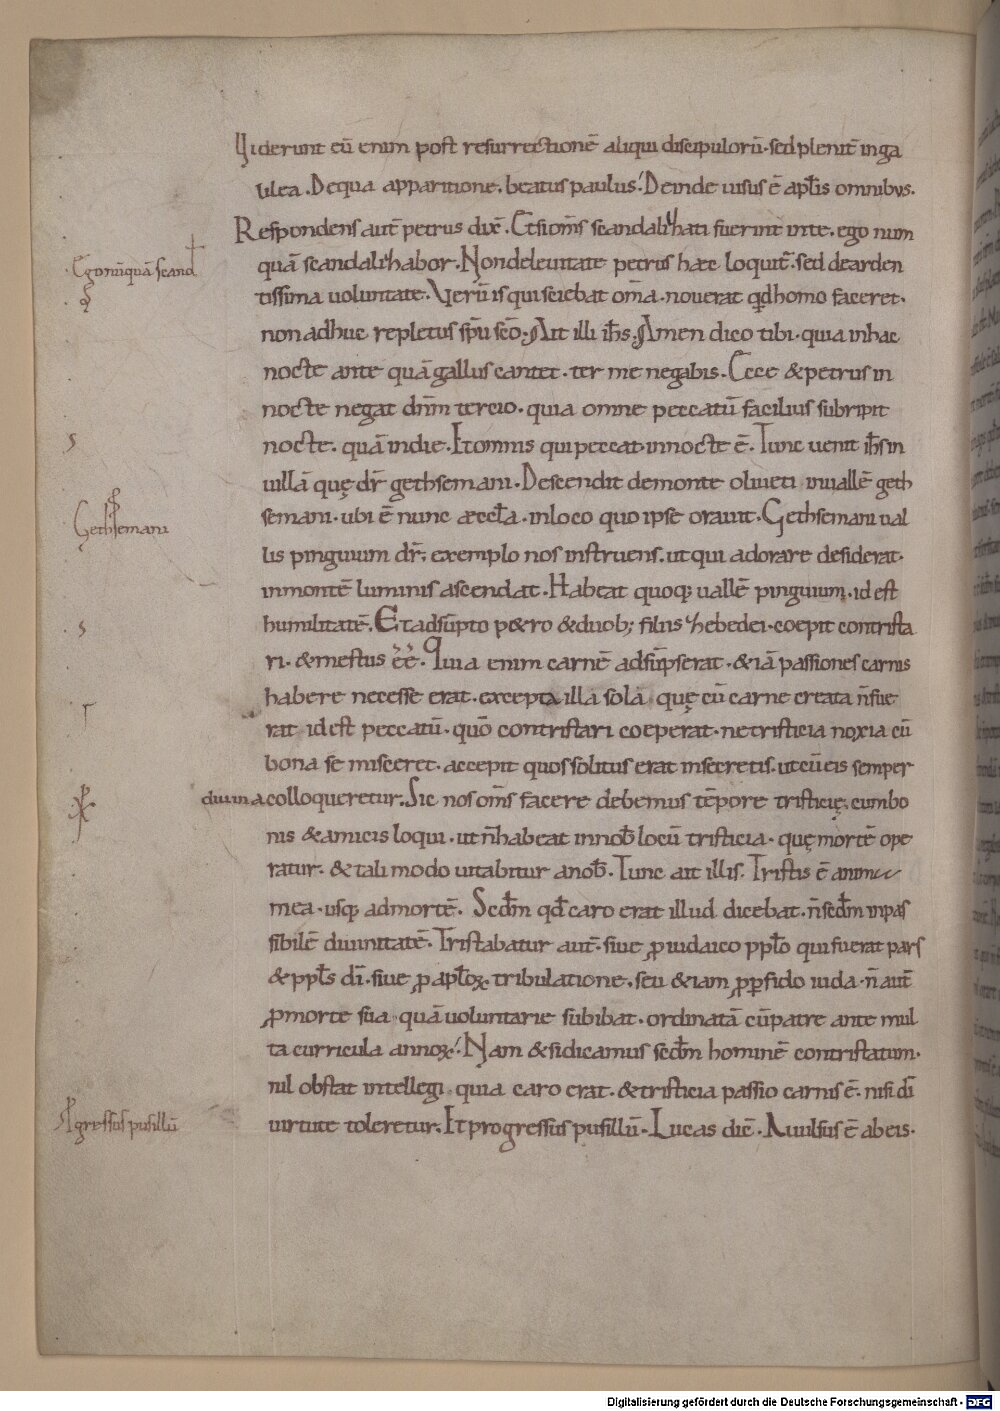 Uiderunt eū enim post resurrectionē aliqui discipulorū· sed pleniť in ga
lilea. De qua apparitione. beatus paulus. Deinde uisus ē apƚis omnibus.
Respondens auť petrus dix̄. Etsi om̄s scandalizati fuerint in te. ego num
quā scandalizabor. Non de leuitate petrus haec loquiť. sed de arden
Ego nūquā scand
tissima uoluntate. Verū is qui sciebat om̄a. nouerat qđ homo faceret.
non adhuc repletus sp̄u sc̄o. Ait illi ih̄s. Amen dico tibi. quia in hac
nocte ante quā gallus cantet. ter me negabis. Ecce & petrus in
nocte negat dn̄m tercio. quia omne peccatū facilius subripit
nocte. quā in die. Et omnis qui peccat in nocte ē. Tunc uenit ih̄s in
uillā quę dr̄ gethsemani. Descendit de monte oliueti in uallē geth
semani. ubi ē nunc aeccƚa. in loco quo ipse orauit. Gethsemani ual
Gethsemani
lis pinguium dr̄. exemplo nos instruens. ut qui adorare desiderat.
in montē luminis ascendat. Habeat quoq; uallē pinguium. id est
humilitatē. Et adsūpto p&ro & duob; filiis zebedei. coepit contrista
ri. & mestus ēē. Quia enim carnē adsūpserat. & iā passiones carnis
habere necesse erat. excepta illa sola quę cū carne creata n̄ fue
rat id est peccatū. quō contristari coeperat. ne tristicia noxia cū
bona se misceret. accepit quos solitus erat in secretis. ut cū eis semper
diuina colloqueretur. Sic nos om̄s facere debemus tēpore tristicię. cum bo
nis & amicis loqui. ut n̄ habeat in noƀ locū tristicia. quę mortē ope
ratur. & tali modo uitabitur a noƀ. Tunc ait illis. Tristis ē anima
mea. usq; ad mortē. Secđm qđ caro erat illud dicebat. n̄ secđm inpas
sibilē diuinitatē. Tristabatur auť. siue ꝓ iudaico ppƚo qui fuerat pars
& ppƚs dī. siue ꝓ apƚoꝝ tribulatione. seu &iam ꝓ ꝑfido iuda. n̄ auť
ꝓ morte sua quā uoluntarie subibat. ordinatā cū patre ante mul
ta curricula annoꝝ. Nam & si dicamus secđm hominē contristatum.
nil obstat intellegi quia caro erat. & tristicia passio carnis ē. nisi dī
uirtute toleretur. Et progressus pusillū. Lucas diċ. Auulsus ē ab eis.
Agressus pusillū
Digitalisierung gefördert durch die Deutsche Forschungsgemeinschaft - DFG